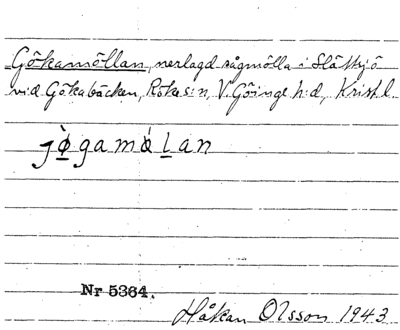 Gökamöllan, nerlagd sågmölla i Slättsjö
vid Gökabäcken, Röke s:n, V. Göinge h:d, Krist. l.
jø̀gamǿlan
Nr 5364.
Håkan Olsson 1943